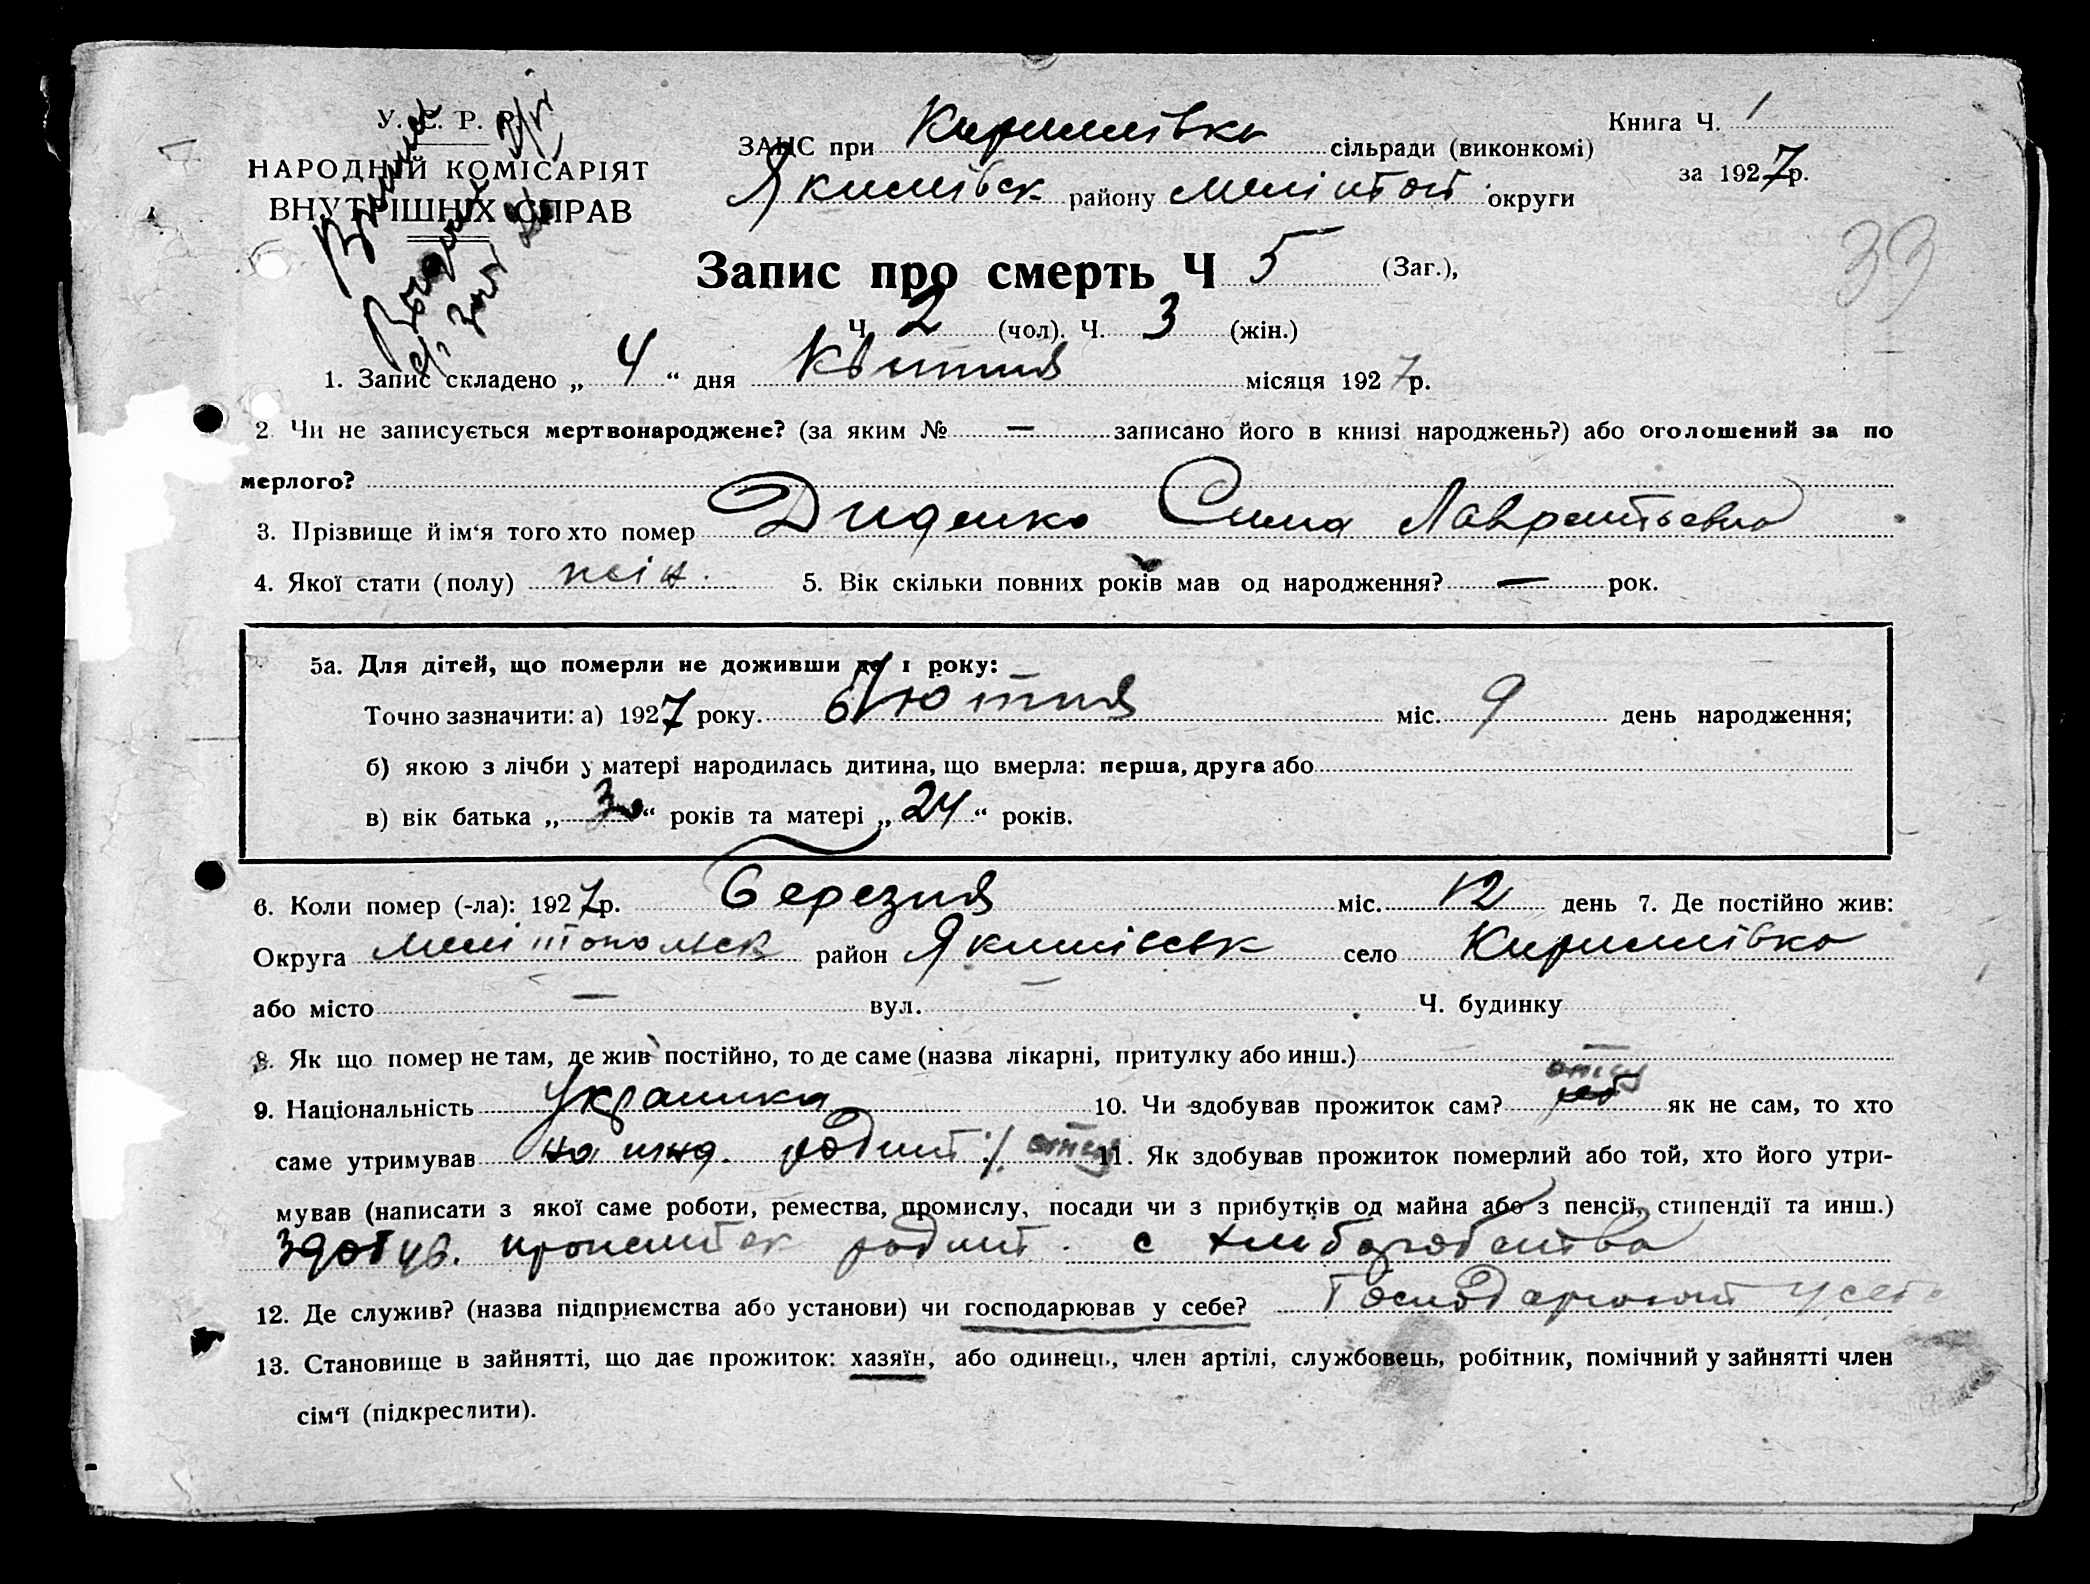 У. С. Р. Р.
НАРОДНІЙ КОМІСАРІЯТ
ВНУТРІШНІХ СПРАВ
ЗАГС при Кирилівка сільради (виконкомі)
Якимівськ району Меліпоп округи
Книга Ч. 1
за 1927р.
33
Запис про смерть Ч 5 (Заг.),
Ч. 2 (чол). Ч. 3 (жін.)
1. Запис складено „ 4 “ дня Квітня місяця 1927р.
2. Чи не записується мертвонароджене? (за яким № — записано його в книзі народжень?) або оголошений за по
мерлого?
3. Прізвище й ім‘я того хто помер Диденко Сима Лаврентьевна
4. Якої стати (полу) жін. 5. Вік скільки повних років мав од народження? — рок.
5а. Для дітей, що померли не доживши до 1 року:
Точно зазначити: а) 1927 року. Лютня міс. 9 день народження;
б) якою з лічби у матері народилась дитина, що вмерла: перша, друга або
в) вік батька „ 30 “ років та матері „ 24 “ років.
6. Коли помер (-ла): 1927р. Березня міс. 12 день 7. Де постійно жив:
Округа Мелітопольск район Якимівськ село Кирилівка
або місто — вул. — Ч. будинку
8. Як що помер не там, де жив постійно, то де саме (назва лікарні, притулку або инш.) —
9. Національність Украинка 10. Чи здобував прожиток сам? отец як не сам, то хто
саме утримував на ижд. родит. отец 11. Як здобував прожиток померлий або той, хто його утри-
мував (написати з якої саме роботи, ремества, промислу, посади чи з прибутків од майна або з пенсії, стипендії та инш.)
здобув. прожиток родит. с хлиборобства
12. Де служив? (назва підприємства або установи) чи господарював у себе? Господарюют у себе
13. Становище в зайнятті, що дає прожиток: хазяїн, або одинець, член артілі, службовець, робітник, помічний у зайнятті член
сім‘ї (підкреслити).